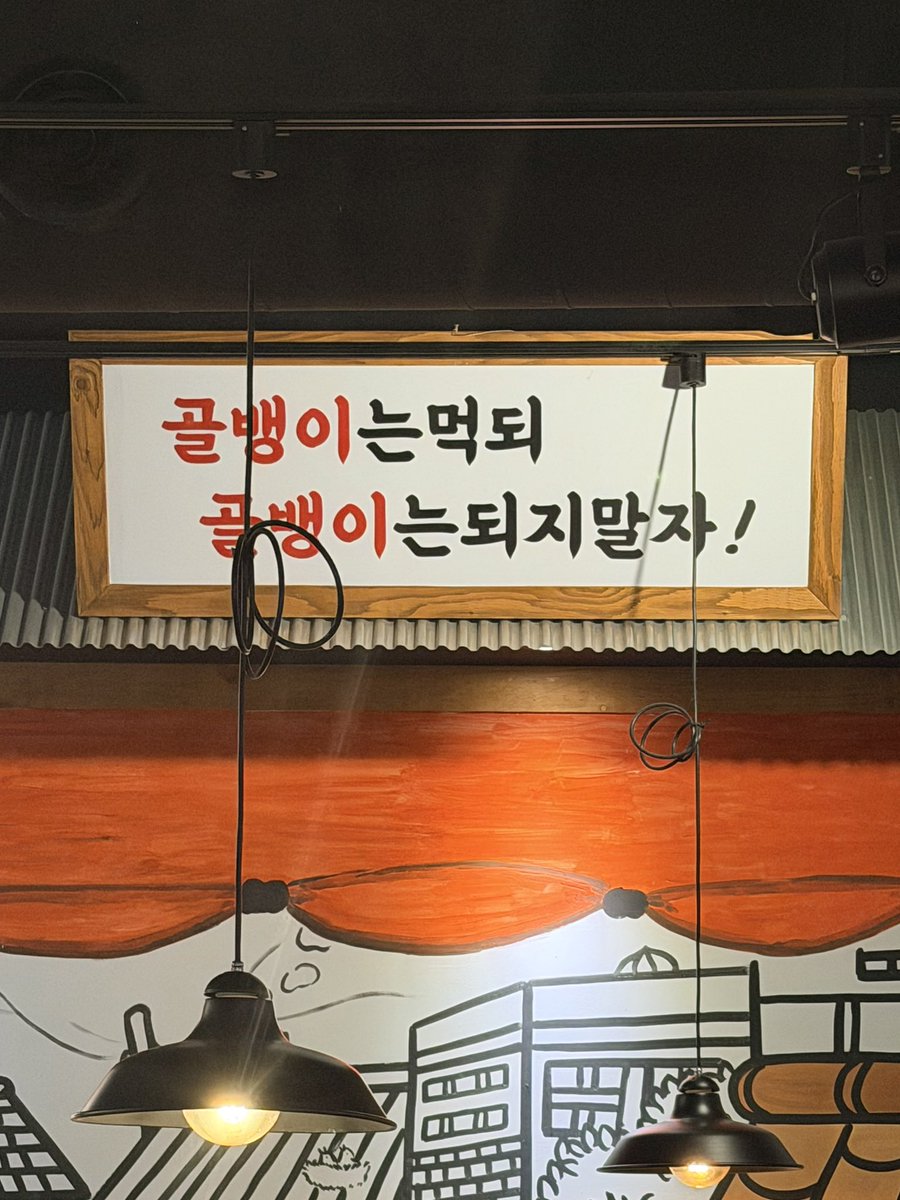 골뱅이는먹되
골뱅이는되지말자!